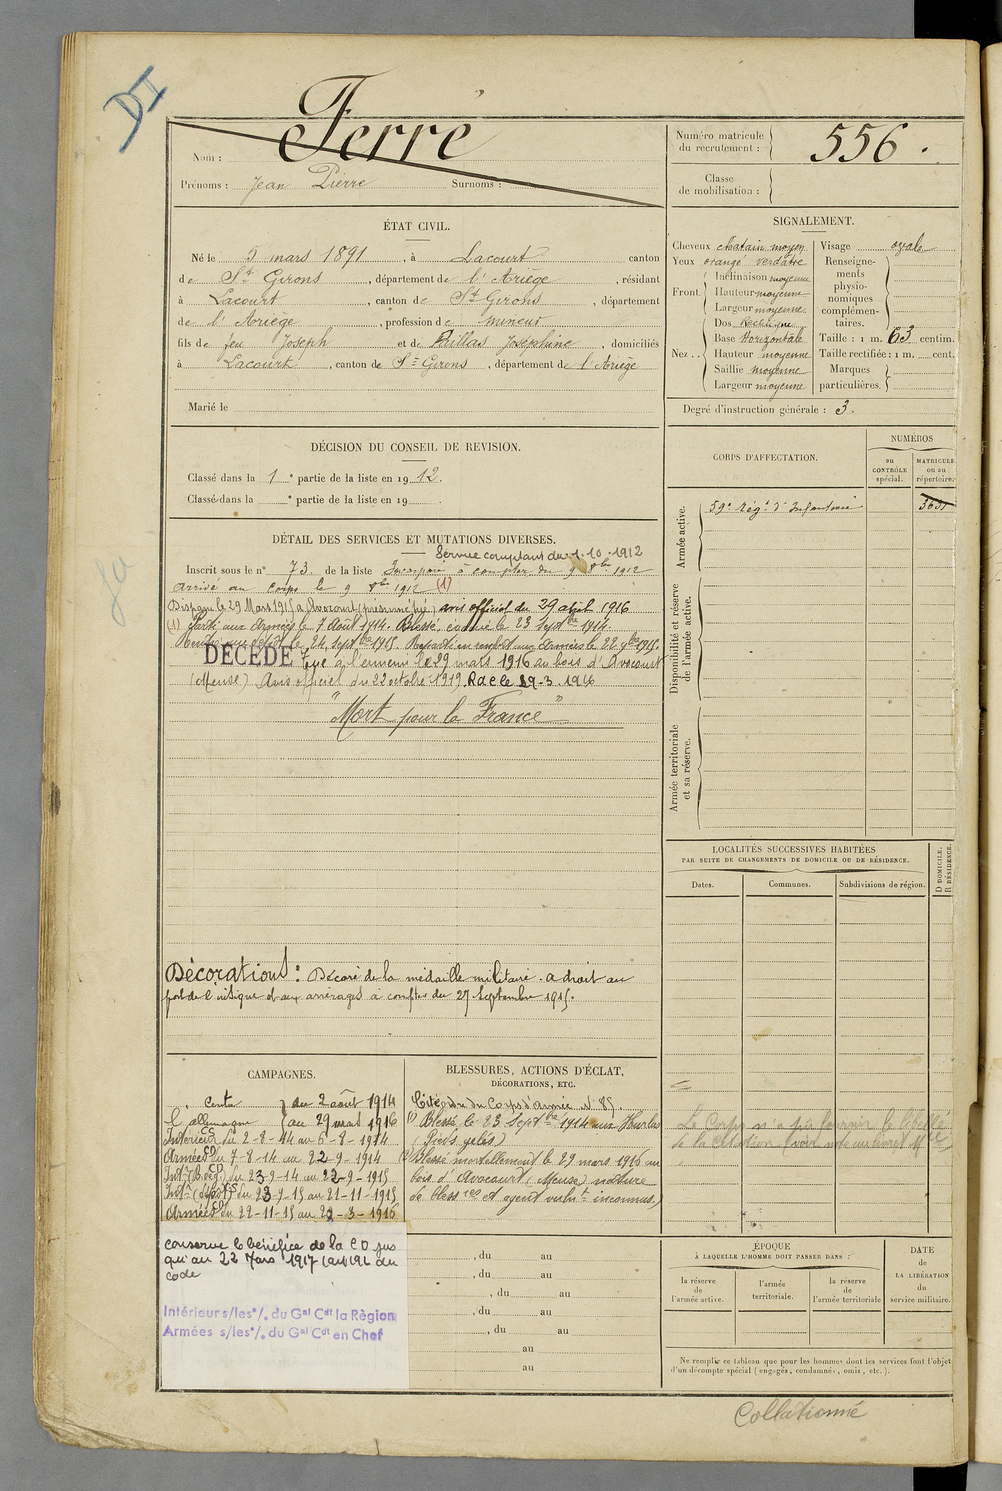 DII
Ferré
Nom :
Prénoms : Jean Pierre Surnoms :
Numéro matricule du recrutement : 556.
Classe de mobilisation :
ÉTAT CIVIL.
Né le 5 mars 1891, à Lacourt canton
de St Girons, département de l'Ariège, résidant
à Lacourt, canton de St Girons, département
de l'Ariège, profession de mineur
fils de feu Joseph et de Joséphine, domiciliés
à Lacourt, canton de St Girons, département de l'Ariège
Marié le
SIGNALEMENT.
Cheveux chatain moyen
Yeux orangé verdâtre
Front. Inclinaison moyenne
Hauteur moyenne
Largeur moyenne
Nez.. Dos Rectiligne
Base Horizontale
Hauteur moyenne
Saillie moyenne
Largeur moyenne
Visage ovale
Renseignements physionomiques complémentaires.
Taille : 1 m. 63 centim.
Taille rectifiée : 1 m. cent.
Marques particulières.
Degré d'instruction générale : 3.
DÉCISION DU CONSEIL DE REVISION.
Classé dans la 1e partie de la liste en 1912.
Classé dans la e partie de la liste en 19
CORPS D'AFFECTATION.
NUMÉROS
au CONTRÔLE spécial.
MATRICULE ou au répertoire.
Armée active.
59e Régt d'Infanterie
Disponibilité et réserve de l'armée active.
Armée territoriale et sa réserve.
DÉTAIL DES SERVICES ET MUTATIONS DIVERSES.
Service comptant du 1.10.1912
Inscrit sous le n° 73. de la liste Incorporé à compter du 9 8bre 1912
arrivé au corps le 9 8bre 1912 (1)
Disparu le 29 Mars 1915 à Avocourt (présumé tué) avis officiel du 29 avril 1916
(1) Parti aux Armées le 7 Août 1914. Blessé, évacué le 23 Septbre 1914.
Rentré au dépôt le 24 septbre 1915. Reparti en renfort aux Armées le 22 9bre 1915.
DÉCÉDÉ Tué à l'ennemi le 29 mars 1916 au bois d'Avocourt
(Meuse) Avis officiel du 22 octobre 1919. R d C le 29-3.1916
"Mort pour la France"
LOCALITÉS SUCCESSIVES HABITÉES
PAR SUITE DE CHANGEMENTS DE DOMICILE OU DE RÉSIDENCE.
Dates.
Communes.
Subdivisions de région.
D DOMICILE. R RÉSIDENCE.
Décorations : Décoré de la médaille militaire. a droit au
port de l'insigne et aux arrérages à compter du 27 Septembre 1915.
CAMPAGNES.
Contre du 2 août 1914
l'allemagne au 29 mars 1916
Intérieur CS du 2-8-14 au 6-8-1914
Armées CD du 7-8-14 au 22-9-1914
du 23-9-14 au 22-9-1915
du 23-9-15 au 21-11-1915
Armées CD du 22-11-15 au 29-3-1916
conserve le bénéfice de la C D jus
qu'au 22 Mars 1917 (art 192 du
code
Intérieur s/les °/. du Gal Cdt la Région
Armées s/les °/. du Gal Cdt en Chef
BLESSURES, ACTIONS D'ÉCLAT,
DÉCORATIONS, ETC.
Cité du Corps d'Armée N° 85.
(1) Blessé le 23 Septbre 1914 aux Hurlus
(Pieds gelés)
Blessé mortellement le 29 mars 1916 au
bois d'Avocourt (Meuse) nature
de bless res et agent vulnt inconnus.)
Le Corps n'a pu fournir le libellé
de la citation
, du au
, du au
, du au
, du au
, du au
au
au
ÉPOQUE
À LAQUELLE L'HOMME DOIT PASSER DANS :
la réserve de l'armée active.
l'armée territoriale.
la réserve de l'armée territoriale
DATE de LA LIBÉRATION du service militaire.
Ne remplir ce tableau que pour les hommes dont les services font l'objet
d'un décompte spécial (engagés, condamnés, omis, etc.).
Collationné